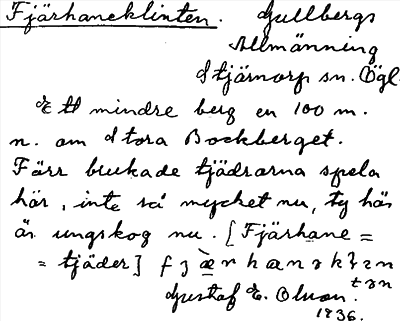 Fjärhaneklinten. Gullbergs
Allmänning
Stjärnorp sn. Ögl.
Ett mindre berg en 100 m.
n. om Stora Bockberget.
Färr brukade tjädrarna spela
här, inte så mycket nu, ty här
är ungskog nu. [Fjärhane =
= tjäder]
Gustaf E. Olsson.
1936.